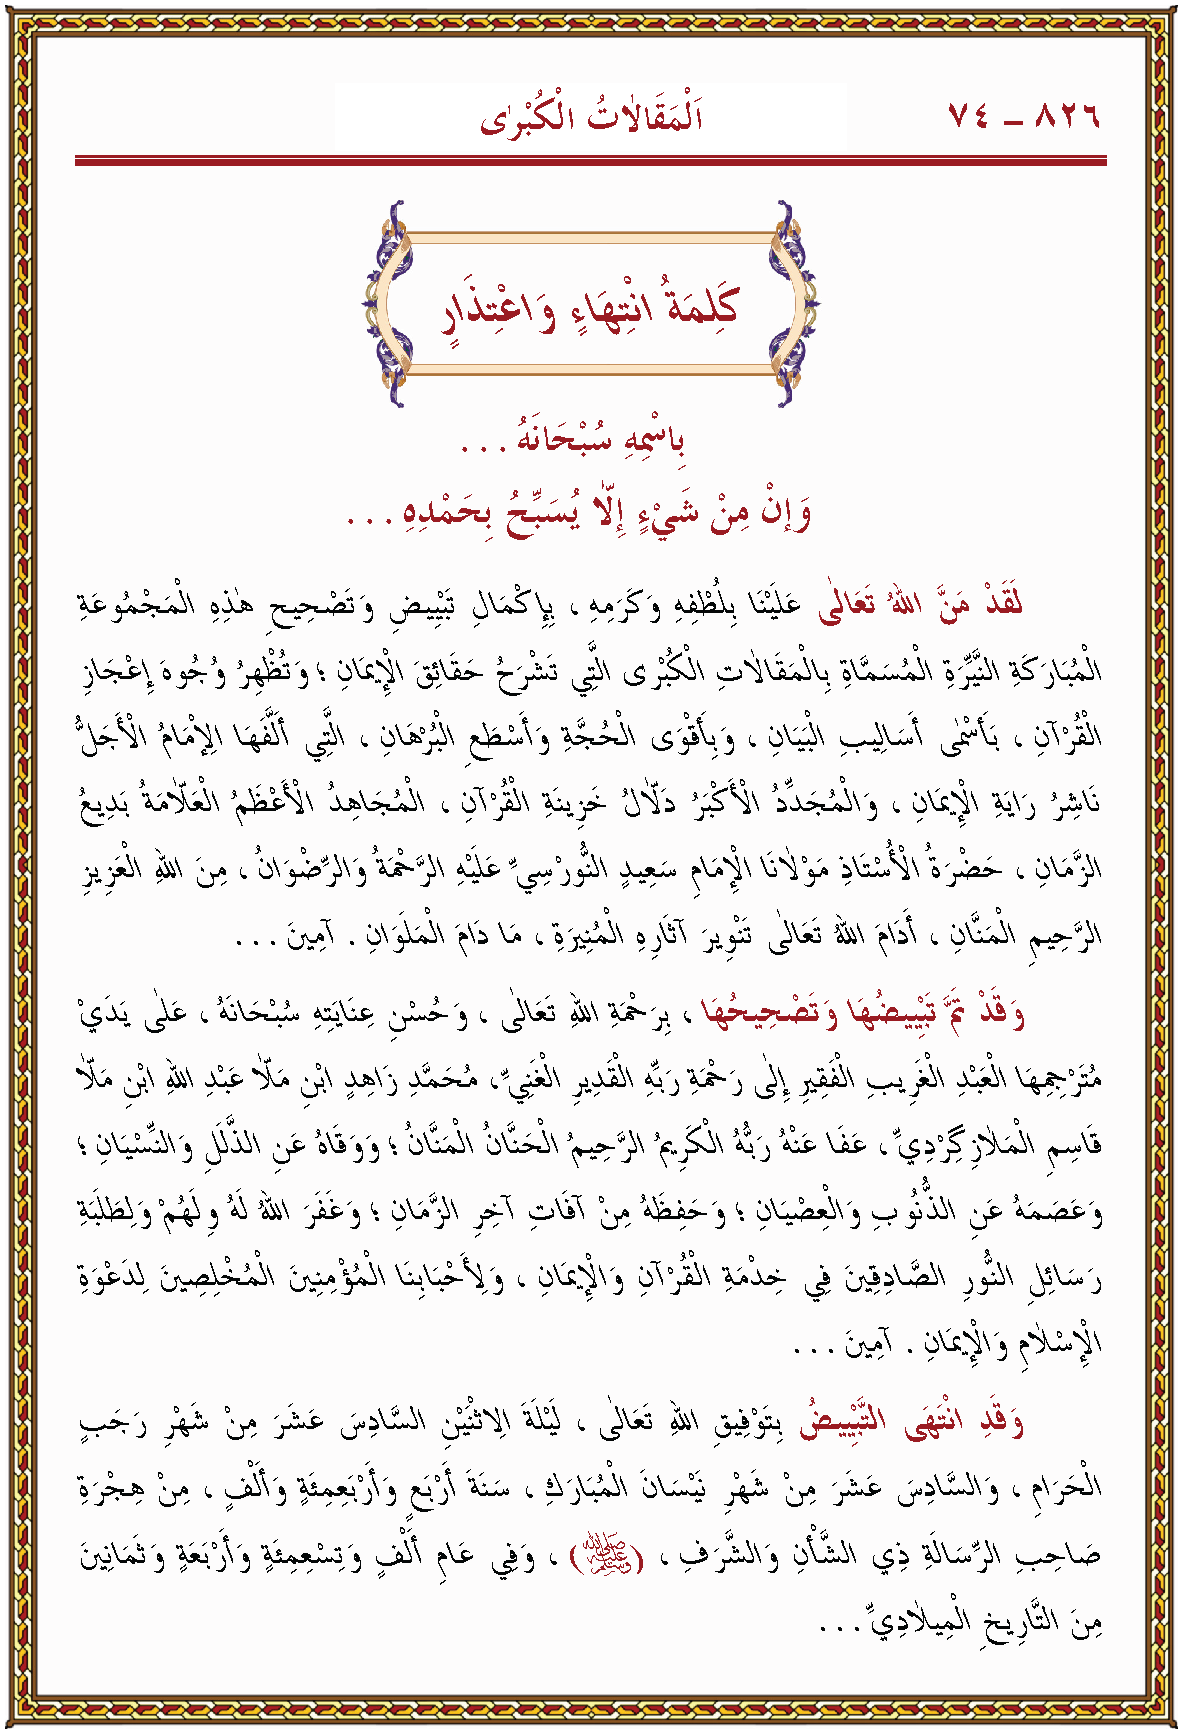 ٨٢٦ ـ ٧٤
اَلْمَقَالَاتُ الْكُبْرٰى
كَلِمَةُ انْتِهَاءٍ وَاعْتِذَارٍ
بِاسْمِهِ سُبْحَانَهُ . . .
وَإِنْ مِنْ شَيْءٍ إِلَّا يُسَبِّحُ بِحَمْدِهِ . . .
لَقَدْ مَنَّ اللهُ تَعَالٰى عَلَيْنَا بِلُطْفِهِ وَكَرَمِهِ ، بِإِكْمَالِ تَبْيِيضِ وَتَصْحِيحِ هٰذِهِ الْمَجْمُوعَةِ
الْمُبَارَكَةِ النَّيِّرَةِ الْمُسَمَّاةِ بِالْمَقَالَاتِ الْكُبْرى الَّتِي تَشْرَحُ حَقَائِقَ الْإِيمَانِ ؛ وَتُظْهِرُ وُجُوهَ إِعْجَازِ
الْقُرْآنِ ، بَأَسْمٰى أَسَالِيبِ الْبَيَانِ ، وَبِأَقْوَى الْحُجَّةِ وَأَسْطَعِ الْبُرْهَانِ ، الَّتِي أَلَّفَهَا اْلإِمَامُ الْأَجَلُّ
نَاشِرُ رَايَةِ الْإِيمَانِ ، وَالْمُجَدِّدُ الْأَكْبَرُ دَلَّالُ خَزِينَةِ الْقُرْآنِ ، الْمُجَاهِدُ الْأَعْظَمُ الْعَلَّامَةُ بَدِيعُ
الزَّمَانِ ، حَضْرَةُ الْأُسْتَاذِ مَوْلَانَا الْإِمَامِ سَعِيدٍ النُّورْسِيِّ عَلَيْهِ الرَّحْمَةُ وَالرِّضْوَانُ ، مِنَ اللهِ الْعَزِيزِ
الرَّحِيمِ الْمَنَّانِ ، أَدَامَ اللهُ تَعَالٰى تَنْوِيرَ آثَارِهِ الْمُنِيرَةِ ، مَا دَامَ الْمَلَوَانِ . آمِينَ . . .
وَقَدْ تَمَّ تَبْيِيضُهَا وَتَصْحِيحُهَا ، بِرَحْمَةِ اللهِ تَعَالٰى ، وَحُسْنِ عِنَايَتِهِ سُبْحَانَهُ ، عَلٰى يَدَيْ
مُتَرْجِمِهَا الْعَبْدِ الْغَرِيبِ الْفَقِيرِ إِلٰى رَحْمَةِ رَبِّهِ الْقَدِيرِ الْغَنِيِّ، مُحَمَّدِ زَاهِدٍ ابْنِ مَلَّا عَبْدِ اللهِ ابْنِ مَلَّا
قَاسِمِ الْمَلَازِگِرْدِيِّ ، عَفَا عَنْهُ رَبُّهُ الْكَرِيمُ الرَّحِيمُ الْحَنَّانُ الْمَنَّانُ ؛ وَوَقَاهُ عَنِ الذَّلَلِ وَالنِّسْيَانِ ؛
وَعَصَمَهُ عَنِ الذُّنُوبِ وَالْعِصْيَانِ ؛ وَحَفِظَهُ مِنْ آفَاتِ آخِرِ الزَّمَانِ ؛ وَغَفَرَ اللهُ لَهُ وِلَهُمْ وَلِطَلَبَةِ
رَسَائِلِ النُّورِ الصَّادِقِينَ فِي خِدْمَةِ الْقُرْآنِ وَالْإِيمَانِ ، وَلِأَحْبَابِنَا الْمُؤْمِنِينَ الْمُخْلِصِينَ لِدَعْوَةِ
الْإِسْلَامِ وَالْإِيمَانِ . آمِينَ . . .
وَقَدِ انْتَهَى التَّبْيِيضُ بِتَوْفِيقِ اللهِ تَعَالٰى ، لَيْلَةَ الاِثْنَيْنِ السَّادِسَ عَشَرَ مِنْ شَهْرِ رَجَبٍ
الْحَرَامِ ، وَالسَّادِسَ عَشَرَ مِنْ شَهْرِ نَيْسَانَ الْمُبَارَكِ ، سَنَةَ أَرْبَعٍ وَأَرْبَعِمِئَةٍ وَأَلْفٍ ، مِنْ هِجْرَةِ
صَاحِبِ الرِّسَالَةِ ذِي الشَّأْنِ وَالشَّرَفِ ، (ﷺ) ، وَفِي عَامِ أَلْفٍ وَتِسْعِمِئَةٍ وَأَرْبَعَةٍ وَثَمَانِينَ
مِنَ التَّارِيخِ الْمِيلَادِيِّ . . .